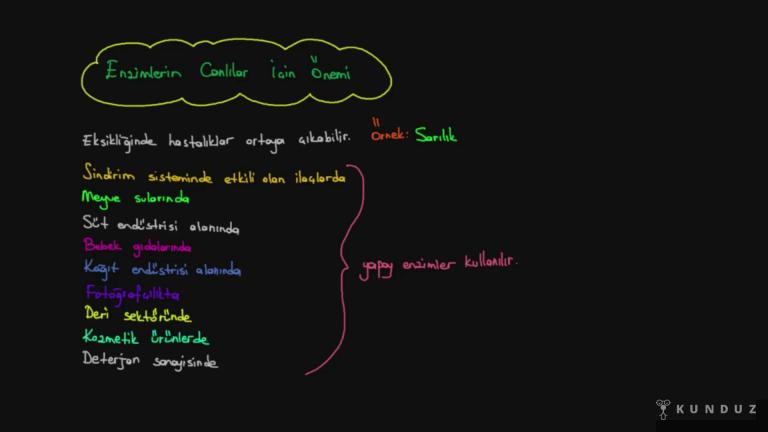 Enzimlerin Canlılar İçin Önemi
Eksikliğinde hastalıklar ortaya çıkabilir. Örnek: Sarılık
Sindirim sisteminde etkili olan ilaçlarda
Meyve sularında
Süt endüstrisi alanında
Bebek gıdalarında
Kağıt endüstrisi alanında
Fotoğrafçılıkta
Deri sektöründe
Kozmetik ürünlerde
Deterjan sanayisinde
yapay enzimler kullanılır.
KUNDUZ